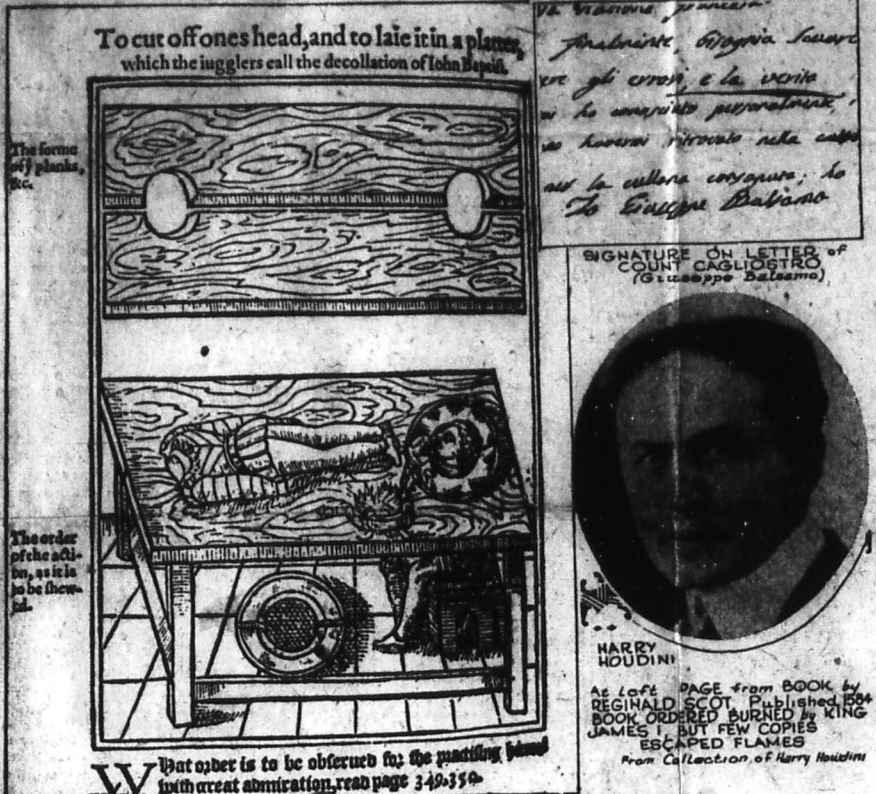 To cut off ones head, and to laie it in a platter,
which the iugglers call the decollation of Iohn Baptist.
The forme
of ye planks,
&c.
The order
of the acti-
on, as it is
to be shew-
ed.
What order is to be obserued for the practising heereof
with great admiration, read page 349.350.
finalmente, bisogna
gli errori, e la verità
ho conosciuto personalmente,
ritrovato nella
la collana
Io Giuseppe Balsamo
SIGNATURE ON LETTER of
COUNT CAGLIOSTRO
(Giuseppe Balsamo)
HARRY
HOUDINI
At Left PAGE from BOOK by
REGINALD SCOT, Published 1584
BOOK ORDERED BURNED by KING
JAMES I, BUT FEW COPIES
ESCAPED FLAMES
From Collection of Harry Houdini